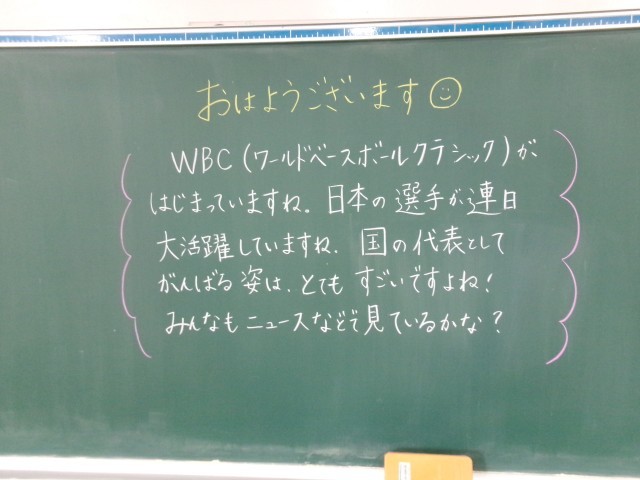 おはようございます☺
WBC(ワールドベースボールクラシック)が
はじまっていますね。日本の選手が連日
大活躍していますね。国の代表として
がんばる姿は、とても すごいですよね!
みんなもニュースなどで見ているかな?